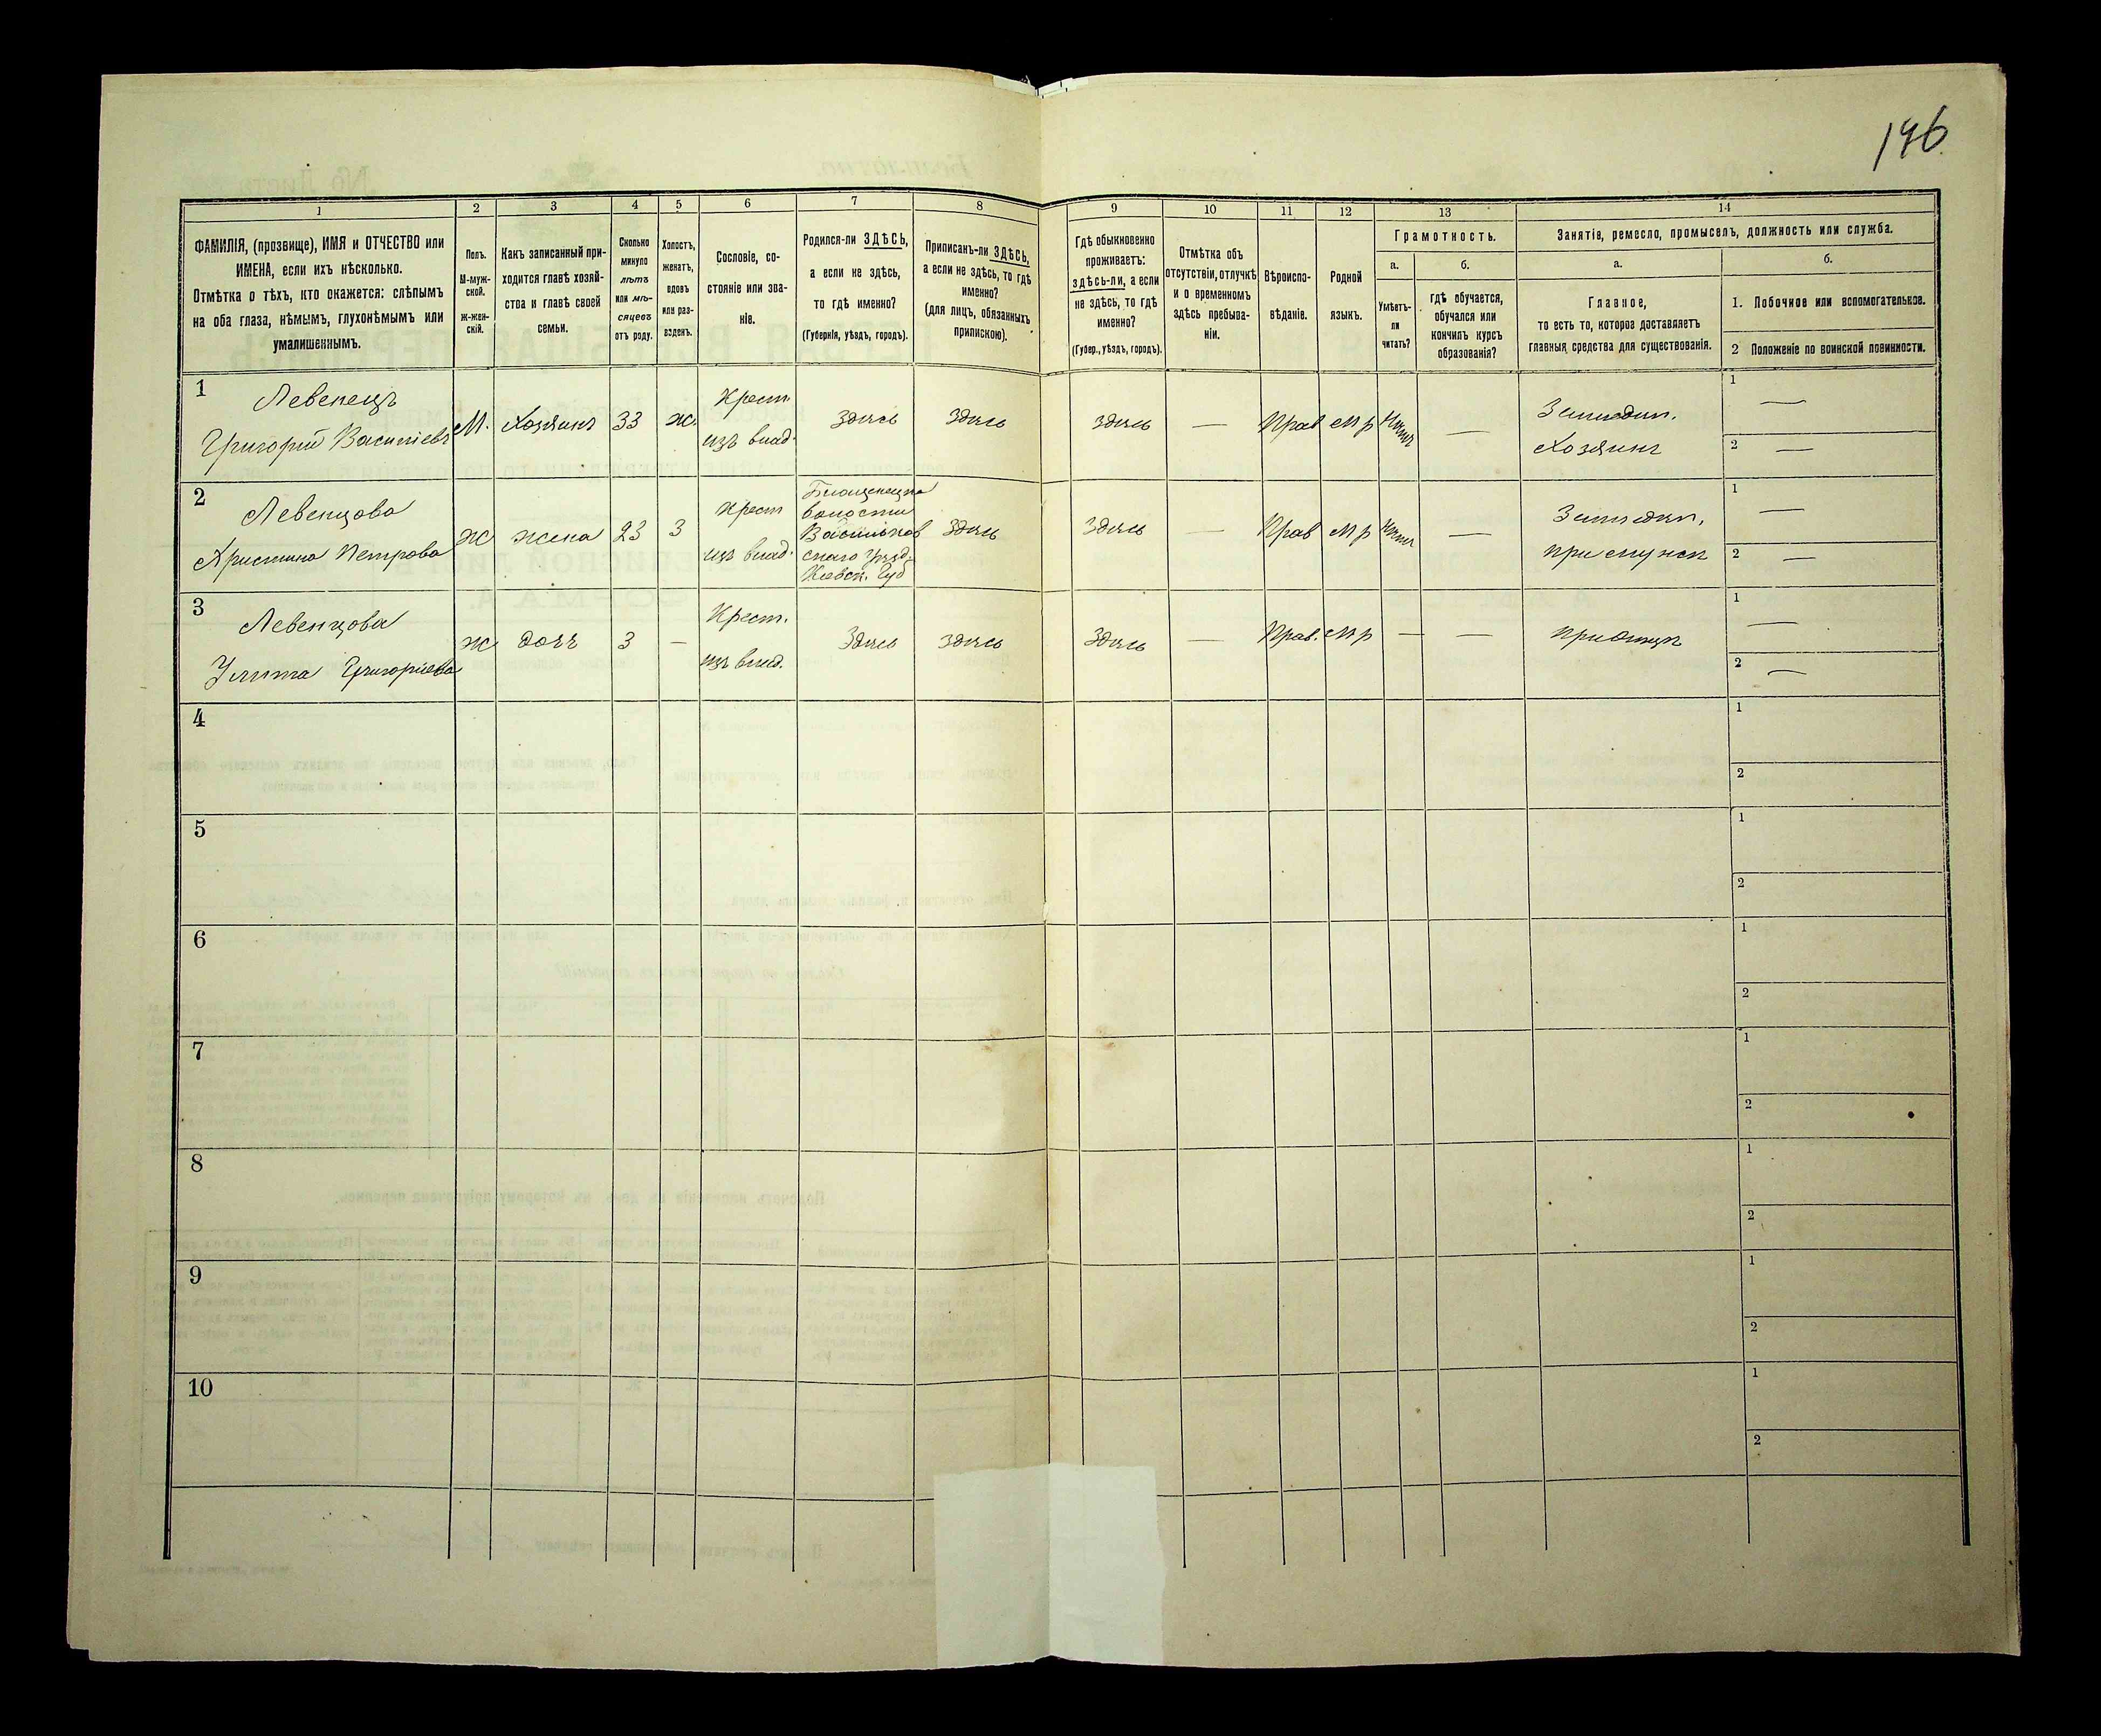 146.
1 2 3 4 5 6 7 8 9 10 11 12 13 14
ФАМИЛІЯ, (прозвище), ИМЯ и ОТЧЕСТВО или
ИМЕНА, если ихъ нѣсколько.
Отмѣтка о тѣхъ, кто окажется: слѣпымъ
на оба глаза, нѣмымъ, глухонѣмымъ или
умалишеннымъ.
Полъ.
М-муж-
ской.
ж-жен-
скій.
Какъ записанный при-
ходится главѣ хозяй-
ства и главѣ своей
семьи.
Сколько
минуло
лѣтъ
или мѣ-
сяцевъ
отъ роду.
Холостъ,
женатъ,
вдовъ
или раз-
веденъ.
Сословіе, со-
стояніе или зва-
ніе.
Родился-ли ЗДѢСЬ,
а если не здѣсь,
то гдѣ именно?
(Губернія, уѣздъ, городъ).
Приписанъ-ли ЗДѢСЬ,
а если не здѣсь, то гдѣ
именно?
(для лицъ, обязанныхъ
припискою).
Гдѣ обыкновенно
проживаетъ:
здѣсь-ли, а если
не здѣсь, то гдѣ
именно?
(Губер., уѣздъ, городъ).
Отмѣтка объ
отсутствіи, отлучкѣ
и о временномъ
здѣсь пребыва-
ніи.
Вѣроиспо-
вѣданіе.
Родной
языкъ.
Грамотность.
а.
Умѣетъ-
ли
читать?
б.
гдѣ обучается,
обучался или
кончилъ курсъ
образованія?
Занятіе, ремесло, промыселъ, должность или служба.
а.
Главное,
то есть то, которое доставляетъ
главныя средства для существованія.
б.
1. Побочное или вспомогательное.
2 Положеніе по воинской повинности.
1
Левенецъ
Григорій Василіевъ
М.
Хозяинъ
33
ж.
Крест
изъ влад.
Здѣсь
Здѣсь
Здѣсь
—
Прав
Мр
Нѣтъ
—
Земледѣл.
Хозяинъ
1 —
2 —
2
Левенцова
Христина Петрова
Ж
Жена
23
З
Крест
изъ влад.
волости
Васильков
скаго Уѣзд.
Кіевск. Губ
Здѣсь
Здѣсь
—
Прав
Мр
Нѣтъ
—
Земледѣл.
при мужѣ
1 —
2 —
3
Левенцова
Улита Григоріева
Ж
дочь
3
—
Крест.
изъ влад.
Здѣсь
Здѣсь
Здѣсь
—
Прав.
Мр
—
—
При отцѣ
1 —
2 —
4
1
2
5
1
2
6
1
2
7
1
2
8
1
2
9
1
2
10
1
2